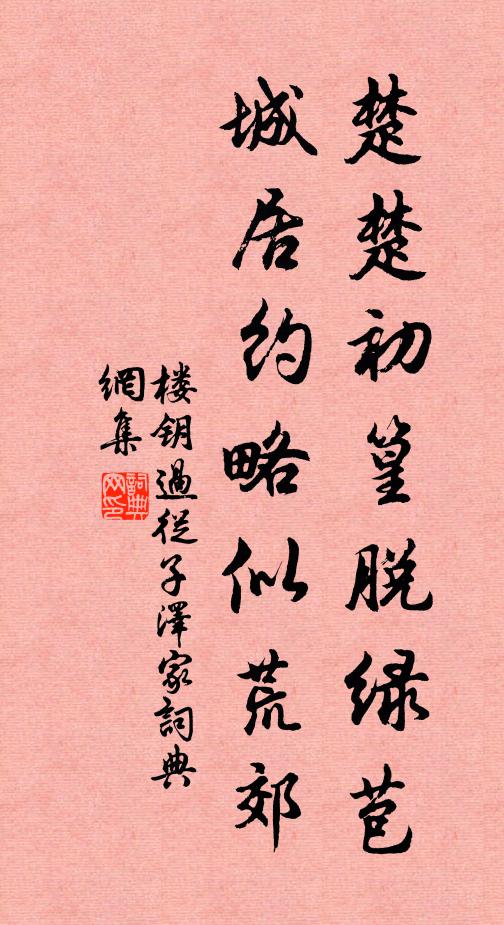 楚楚初篁脱绿苞
城居约略似荒郊
楼钥過從子澤家詞典
網集
詞典
网印